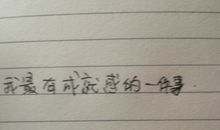 我最有成就感的一件事.